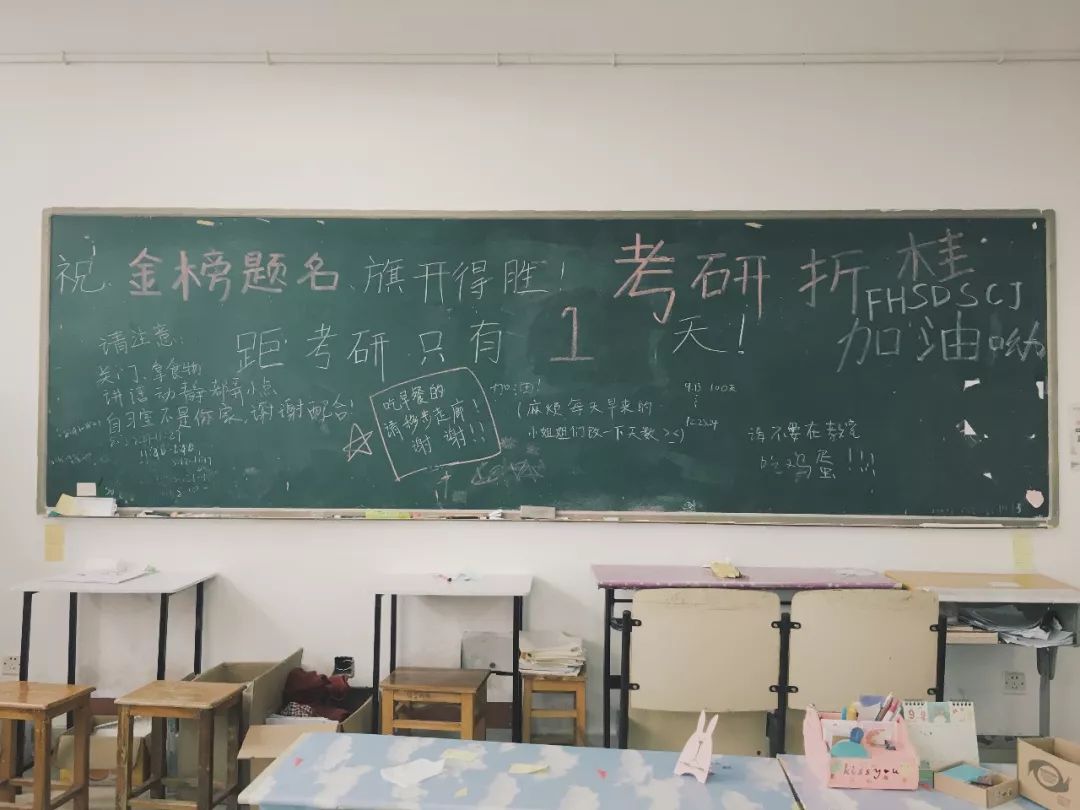 祝 金榜题名、旗开得胜！ 考研 折桂
FHSDSCJ
加油呦
距考研只有 1 天！
请注意：
关门、拿食物
讲话动静都弄小点
自习室不是你家，谢谢配合！
吃早餐的
请移步走廊！
谢谢！！
加油！
（麻烦每天早来的
小姐姐们改一下天数><）
9.13 100天
请不要在教室
吃鸡蛋！！！
kiss you